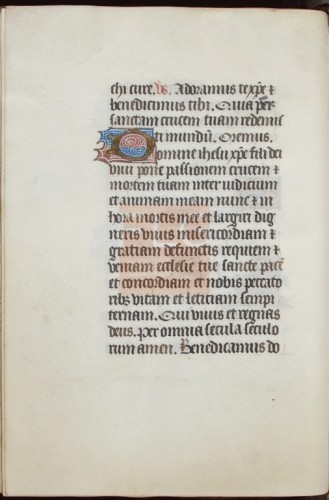 chi cure. Vs. Adoramus te xp̄e ⁊
benedicimus tibi. Quia per
sanctam crucem tuam redemis
ti mundū. Oremus.
Domine ihesu xp̄e fili dei
vivi pone passionem crucem ⁊
mortem tuam inter iudicium
et animam meam nunc ⁊ in
hora mortis mee et largiri dig
neris vivis misericordiam ⁊
gratiam defunctis requiem ⁊
veniam ecclesie tue sancte pacē
et concordiam et nobis peccato
ribꝫ vitam et leticiam sempi
ternam. Qui vivis et regnas
deus. per omnia secula seculo
rum amen. Benedicamus do